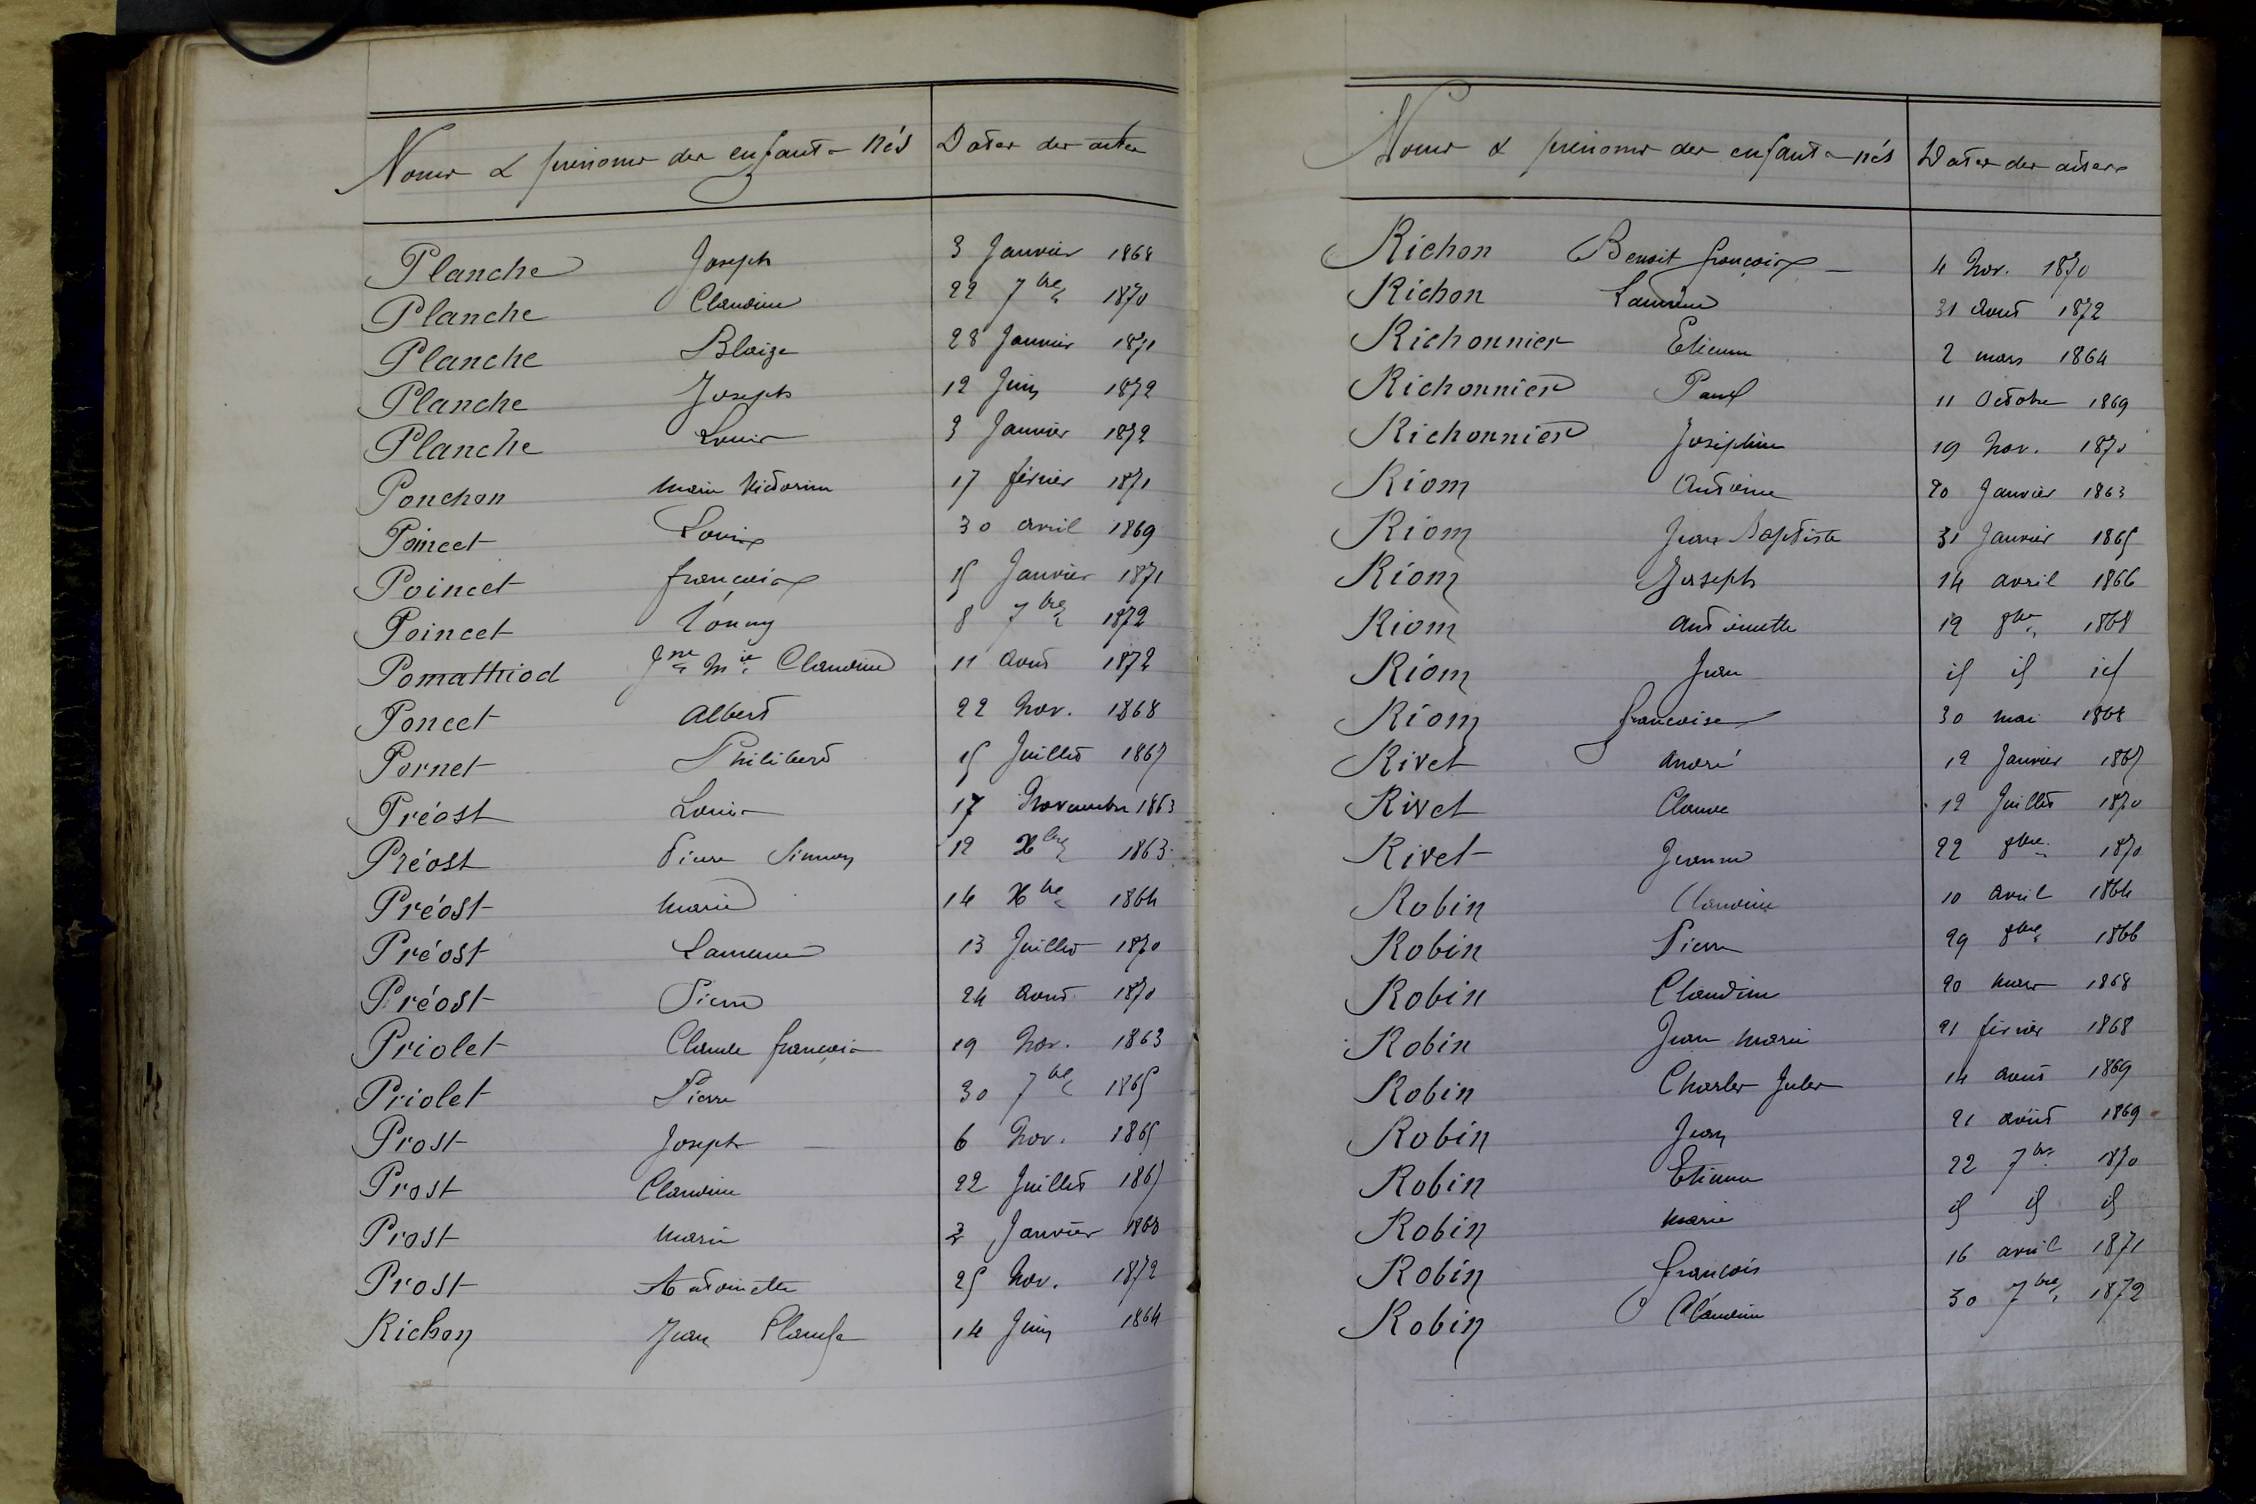 Noms & prénoms des enfants nés Dates des actes
Planche Joseph 3 Janvier 1868
Planche Claudine 22 7bre 1870
Planche Blaize 28 Janvier 1871
Planche Joseph 12 Juin 1872
Planche Louis 3 Janvier 1872
Ponchon Marie Victorine 17 février 1871
Poincet Louis 30 avril 1869
Poincet françois 15 Janvier 1871
Poincet 8 7bre 1872
Pomathiod Jne Mie Claudine 11 Aout 1872
Poncet Albert 22 Nov. 1868
Pornet Philibert 15 Juillet 1867
Préost Louis 17 Novembre 1863
Préost Pierre Simon 12 Xbre 1863
Préost Marie 14 Xbre 1864
Préost Laurence 13 Juillet 1870
Préost Pierre 24 Aout 1870
Priolet Claude françois 19 Nov. 1863
Priolet Pierre 30 7bre 1865
Prost Joseph 6 Nov. 1865
Prost Claudine 22 Juillet 1867
Prost Marie Janvier 1868
Prost Antoinette 25 Nov. 1872
Richon Jean Claude 14 Juin 1864
Noms & prénoms des enfants nés Dates des actes
Richon Benoit françois 4 Nov. 1870
Richon 31 Aout 1872
Richonnier Etienne 2 mars 1864
Richonnier Paul 11 Octobre 1869
Richonnier Joséphine 19 Nov. 1870
Riom Antoine 20 Janvier 1863
Riom Jean Baptiste 31 Janvier 1865
Riom Joseph 14 avril 1866
Riom Antoinette 12 8bre 1868
Riom Jean id id id
Riom françoise 30 mai 1868
Rivet André 12 Janvier 1867
Rivet Claude 12 Juillet 1870
Rivet Jeanne 22 8bre 1870
Robin Claudine 10 avril 1864
Robin Pierre 29 8bre 1866
Robin Claudine 20 mars 1868
Robin Jean Marie 21 février 1868
Robin Charles Jules 14 Aout 1869
Robin Jean 21 août 1869
Robin Etienne 22 7bre 1870
Robin Marie id id id
Robin françois 16 avril 1871
Robin Claudine 30 7bre 1872